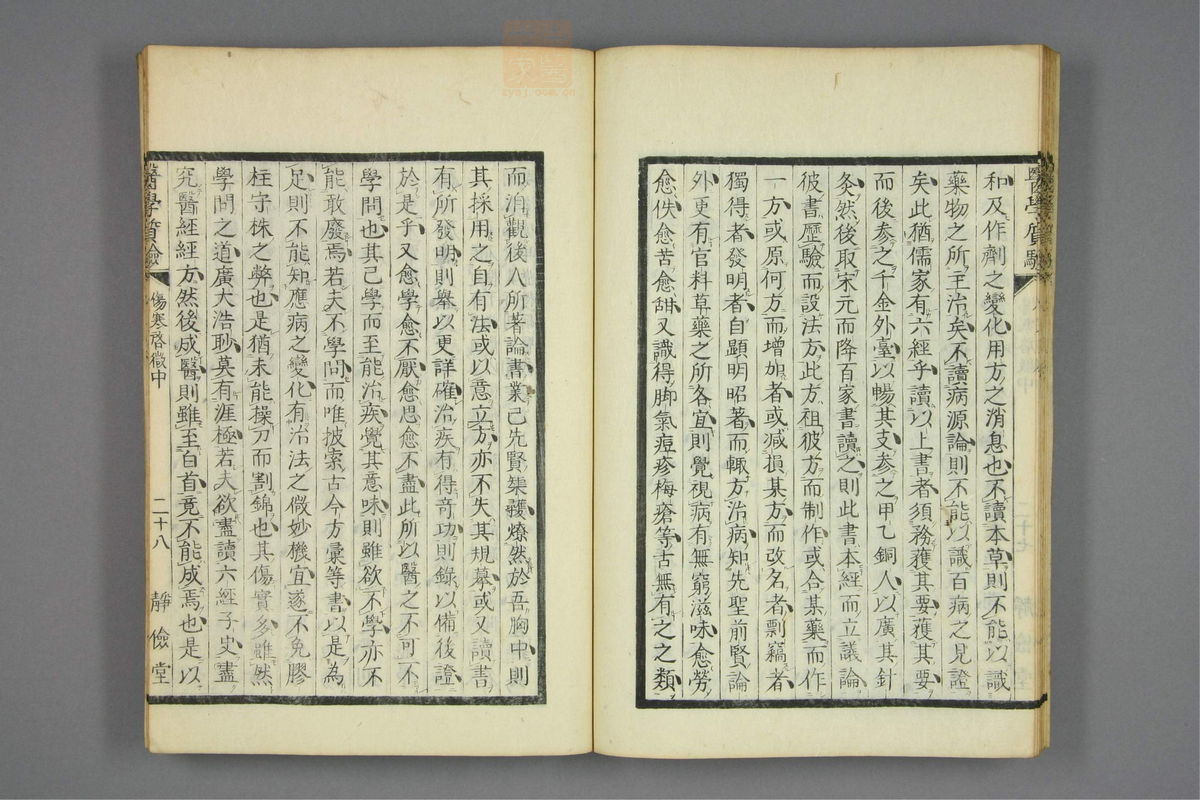 和及作劑之變化用方之消息也不讀本草則不能以識
藥物之所主治矣不讀病源論則不能以識百病之見證
矣此猶儒家有六經乎讀以上書者須務獲其要獲其要
而後参之千金外臺以暢其支参之甲乙銅人以廣其針
灸然後取宋元而降百家書讀之則此書本經而立議論
彼書歷驗而設法方此方祖彼方而制作或合某藥而作
一方或原何方而增加者或減損某方而改名者剽竊者
獨得者發明者自顕明昭著而輙方治病知先聖前賢論
外更有官料草藥之所各宜則覺視病有無窮滋味愈勞
愈佚愈苦愈甜又識得脚氣痘疹梅瘡等古無有之之類
醫學
二十七
靜儉堂
而消觀後人所著論書業已先賢榘矱燎然於吾胸中則
其採用之自有法或以意立方亦不失其規摹或又讀書
有所發明則舉以更詳確治疾有得奇功則錄以備後證
於是乎又愈學愈不厭愈思愈不盡此所以醫之不可不
學問也其已學而至能治疾覺其意味則雖欲不學亦不
能敢廢焉若夫不學問而唯披索古今方彙等書以是為
足則不能知應病之變化有治法之微妙機宜遂不免膠
柱守株之弊也是猶未能操刀而割錦也其傷實多雖然
學問之道廣大浩眇莫有涯極若夫欲盡讀六經子史盡
究醫經經方然後成醫則雖至白首竟不能成焉也是以
醫學
傷寒啓微中
二十八
靜儉堂
zysj.com.cn